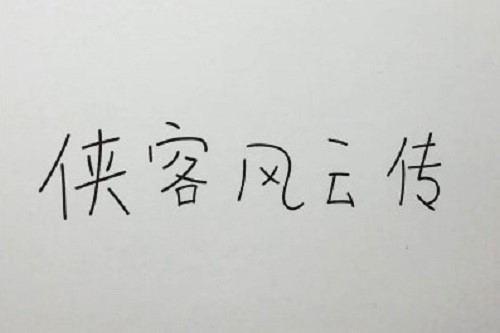 侠客风云传